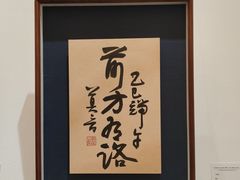 乙巳端午
前方有路
莫言